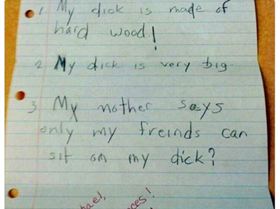 1 My dick is made of
hard wood!
2 My dick is very big.
3 My mother says
only my freinds can
sit on my dick?